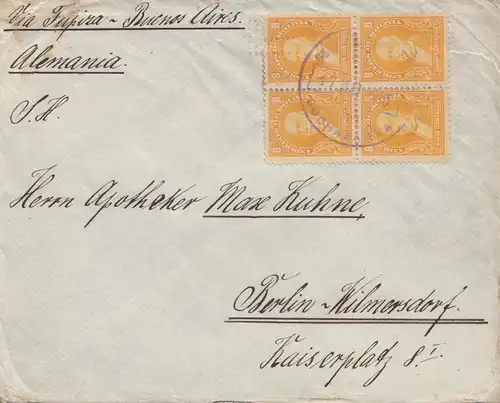 Via Tupiza - Buenos Aires.
Alemania.
S. H.
Herrn Apotheker Max Kuhne,
Berlin-Wilmersdorf.
Kaiserplatz 8 I.
8 8
8 8